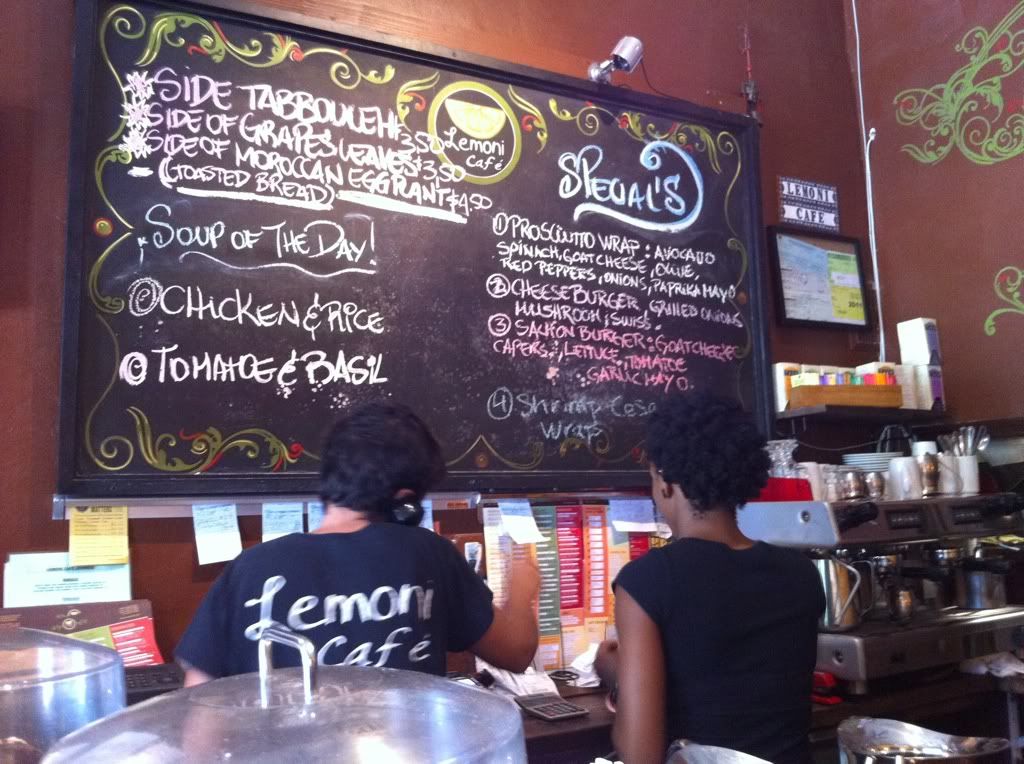 SIDE TABBOULEH $3,50
SIDE OF GRAPES LEAVES $3,50
SIDE OF MOROCCAN EGGPLANT $4,50
(TOASTED BREAD)
Lemoni
Café
SOUP OF THE DAY!
CHICKEN & RICE
TOMATOE & BASIL
SPECIAL'S
① PROSCIUTTO WRAP: AVOCADO
SPINACH, GOAT CHEESE, OLIVE,
RED PEPPERS, ONIONS, PAPRIKA MAYO
② CHEESEBURGER GRILLED ONIONS
MUSHROOM, SWISS.
③ SALMON BURGER: GOAT CHEEZE
CAPERS, LETTUCE, TOMATOE
GARLIC MAYO.
④ Shrimp
Wraps
LEMONI
CAFE
Lemoni
Café